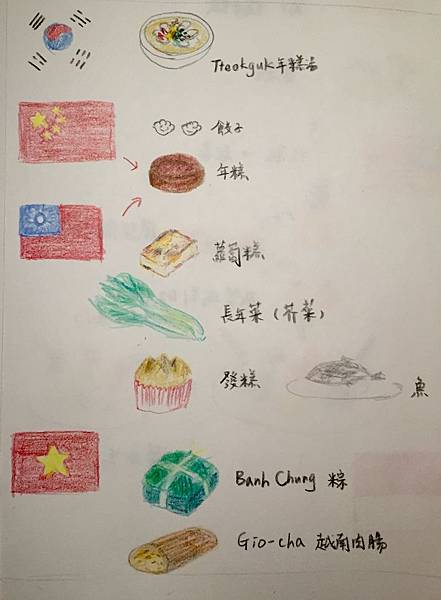 Tteokguk年糕湯
餃子
年糕
蘿蔔糕
長年菜（芥菜）
發糕
魚
Banh Chung 粽
Gio-cha 越南肉腸